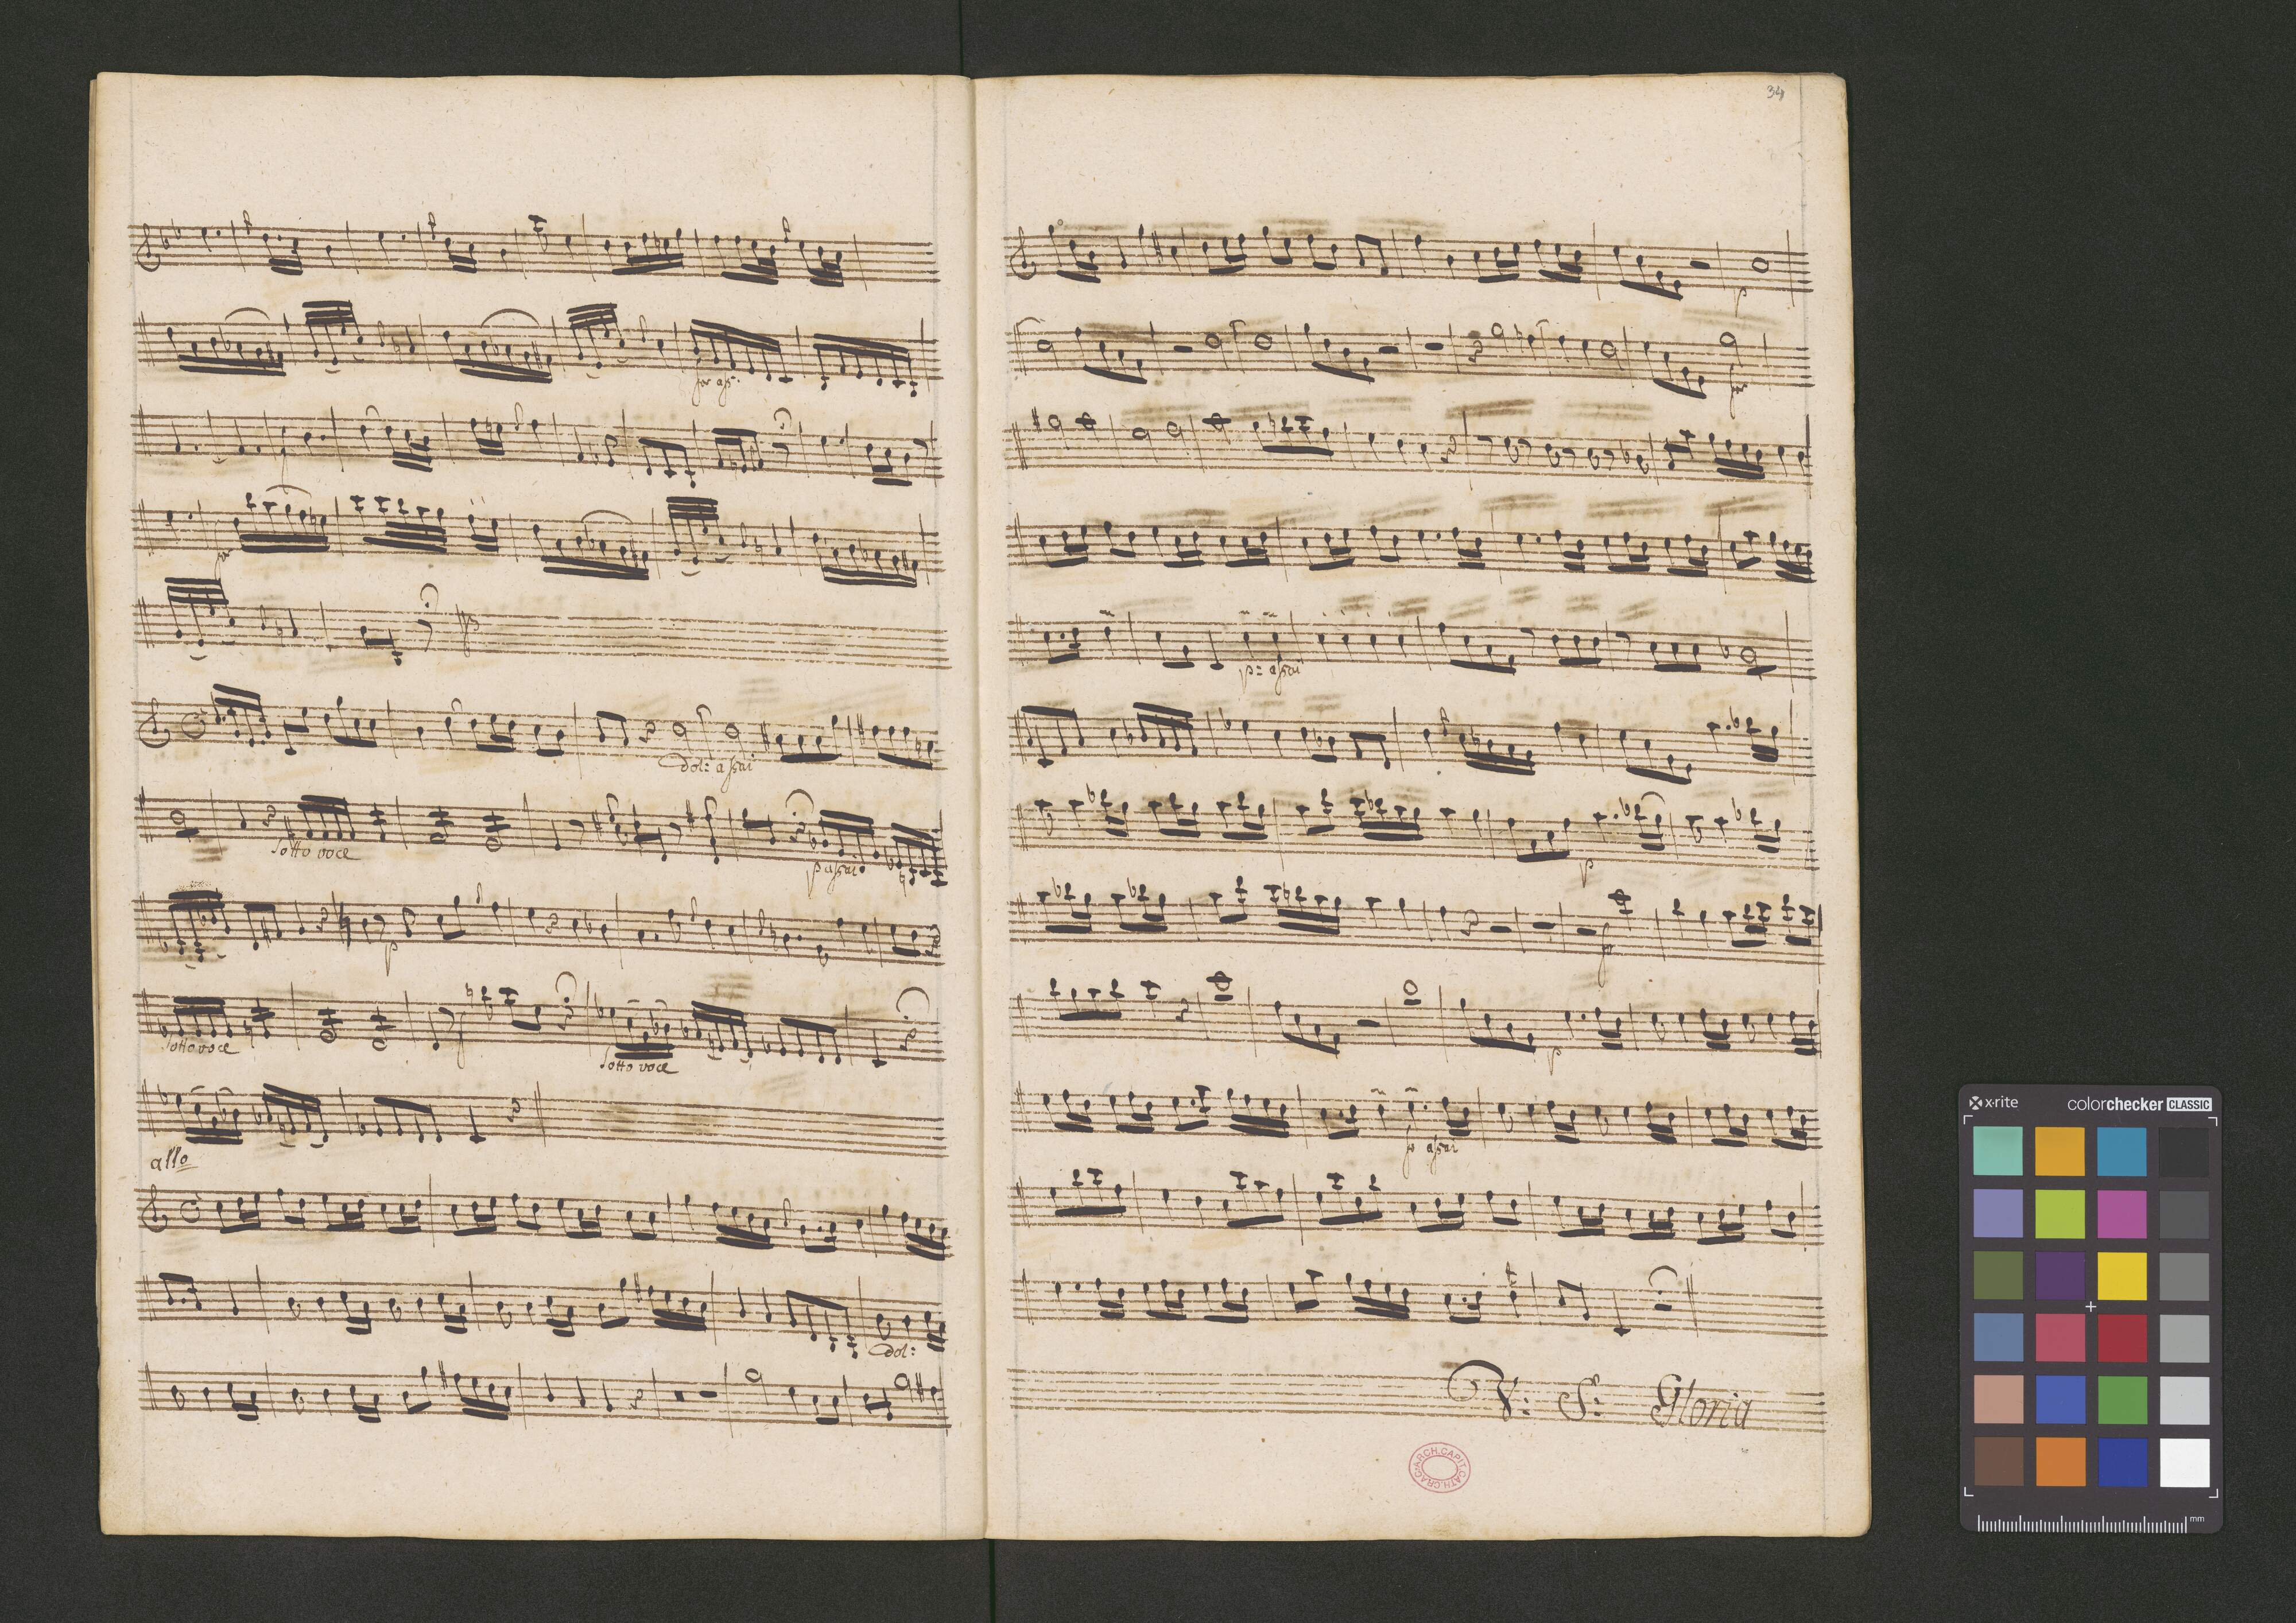 for aſs:
p
for
dol: aſsai
sotto voce
p aſsai
p
sotto voce
sotto voce
allo
dol:
34
p
for
p: aſsai
p
f
p
fo aſsai
V: S: Gloria
ARCH.CAPIT.CATH.CRAC
x-rite
colorchecker CLASSIC
mm